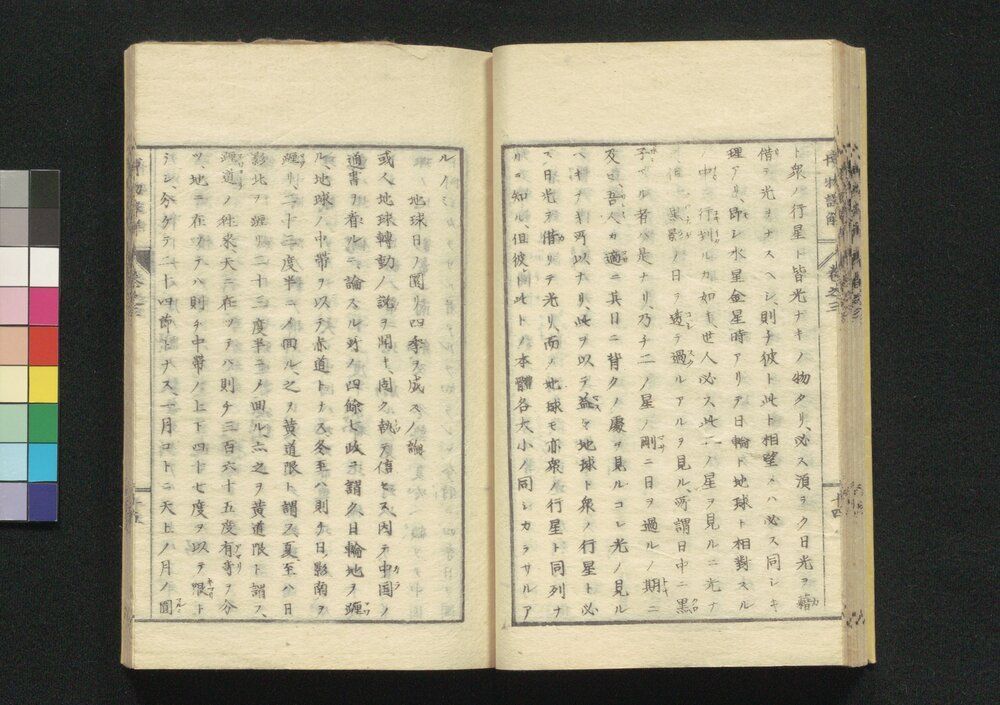 博物語解 巻之三
ト衆ノ行星ト皆光ナキノ物タリ、必ス須ヲク日光ヲ藉
借テ光ヲナスヘシ、則チ彼ト此ト相望メハ必ス同シキ
理アリ、即シ水星金星時アリテ日輪ト地球ト相對スル
ノ中ニ行到ルカ如キ、世人必ス此二ノ星ヲ見ルニ光ナ
ク、但一黒影ノ日ヲ遶テ過ルアルヲ見ル、所謂日中ニ黒
子アル者ハ是ナリ、乃チ二ノ星ノ剛ニ日ヲ過ルノ期ニ
及ヒ、吾人カ適ニ其日ニ背クノ處ヲ見ルコレ光ノ見ル
ヘキナキ所以ナリ、此ヲ以テ益々地球ト衆ノ行星ト必
ス日光ヲ借リテ光リ、而メ地球モ亦衆ノ行星ト同列ナ
ルヲ知ル、但彼ト此トノ本體各大小ノ同シカラサルア
十四
ルノミ
地球日ノ圜リ四季ヲ成スノ論
或人地球轉動ノ説ヲ聞キ、固ク執テ信セス、因テ中國ノ
通書ヲ看ルニ、論スル所ノ四餘七政ヲ謂ク、日輪地ヲ纒
ル、地球ノ中帶ヲ以テ赤道トナス、冬至ハ則チ日影南ヲ
躔リ、二十三度半ニメ回ル、之ヲ黄道限ト謂フ、夏至ハ日
影北ヲ躔リ二十三度半ニメ回ル、亦之ヲ黄道限ト謂フ、
躔道ノ徃来天ニ在ツテハ則チ三百六十五度有奇ヲ分
ツ、地ニ在ツテハ則チ中帶ノ上下四十七度ヲ以テ限ト
シ、分ケテ二十四節トナス、一月コトニ天上ノ月ノ圓
巻之三
十五